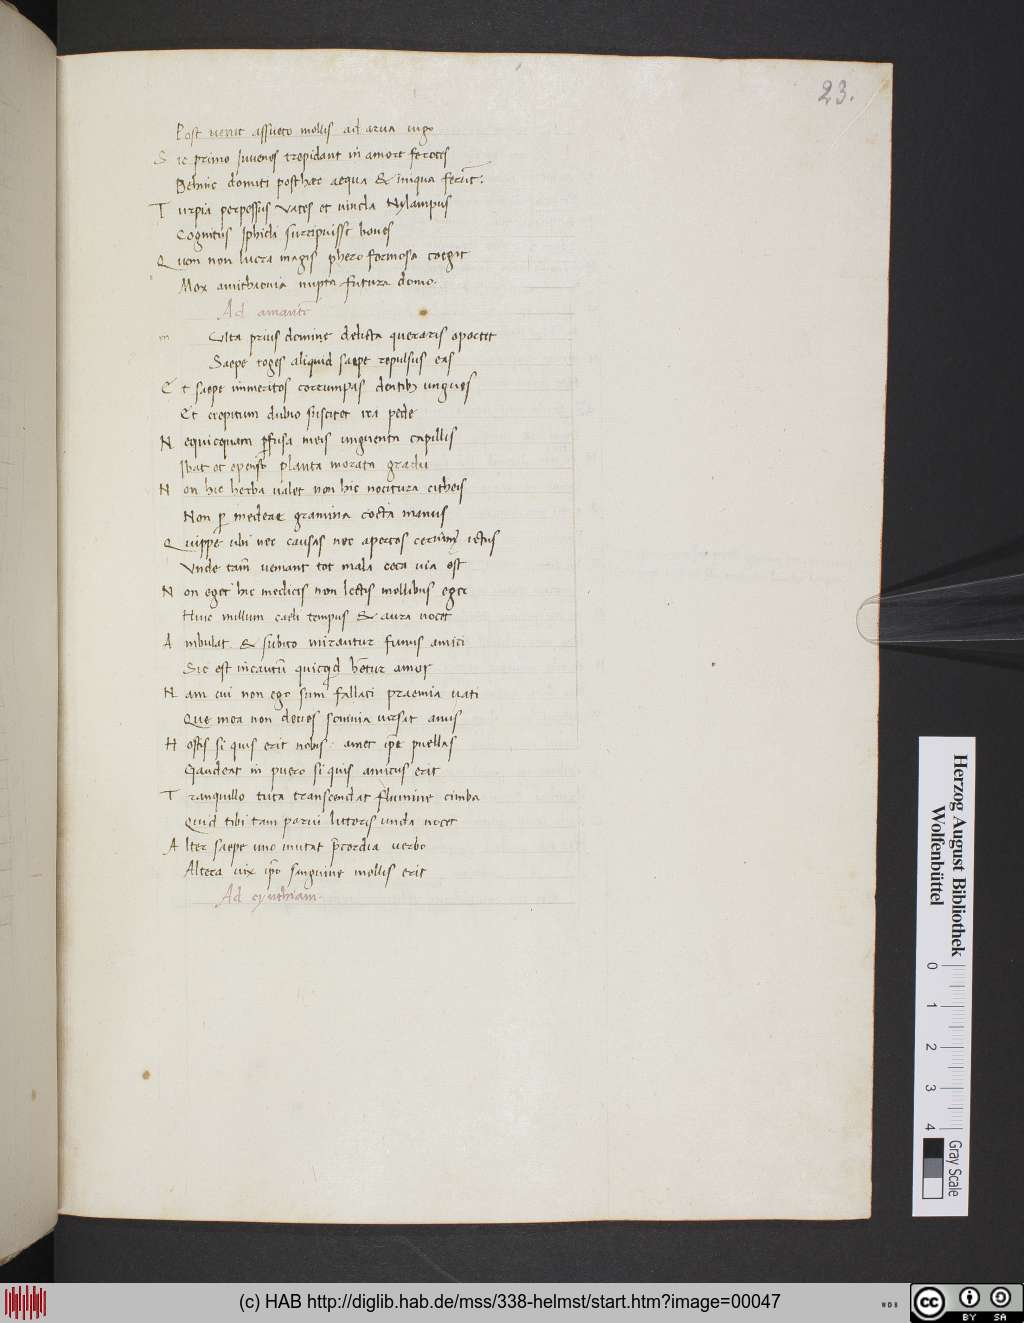 23.
Post venit assueto mollis ad arva iugo
S ic primo Juvenes trepidant in amore feroces
Dehinc domiti posthac aequa & iniqua ferūt.
T urpia perpessus vates et vincla Nylampus
Cognitus Iphicli surripuisse boves
Q uem non lucra magis phero formosa coegit
Mox amithaonia nupta futura domo.
Ad amantē
m Ulta prius domine delicta queraris oportet
Saepe roges aliquid saepe repulsus eas
E t saepe immeritos corrumpas dentibꝫ ungues
Et crepitum dubio suscitet ira pede
N equicquam ꝑfusa meis unguenta capillis
Ibat et expenso planta morata gradu
N on hic herba valet non hic nocitura citheis
Non per medeae gramina cocta manus
Q uippe ubi nec causas nec apertos cernimꝰ ictus
Unde tam̄ veniant tot mala ceca via est
N on eget hic medicis non lectis mollibus eger
Huic nullum caeli tempus & aura nocet
A mbulat & subito mirantur funus amici
Sic est incautū quicqd hētur amor
N am cui non ego sum fallaci praemia vati
Que mea non decies somnia versat anus
H ostis si quis erit nobis amet ip̄e puellas
Gaudeat in puero si quis amicus erit
T ranquillo tuta transcendat flumine cimba
Quid tibi tam parvi littoris unda nocet
A lter saepe uno mutat p̄cordia verbo
Altera vix ip̄o sanguine mollis erit
Ad cynthiam.
Herzog August Bibliothek
Wolfenbüttel
0 1 2 3 4
Gray Scale
(c) HAB http://diglib.hab.de/mss/338-helmst/start.htm?image=00047
WDB
cc BY SA